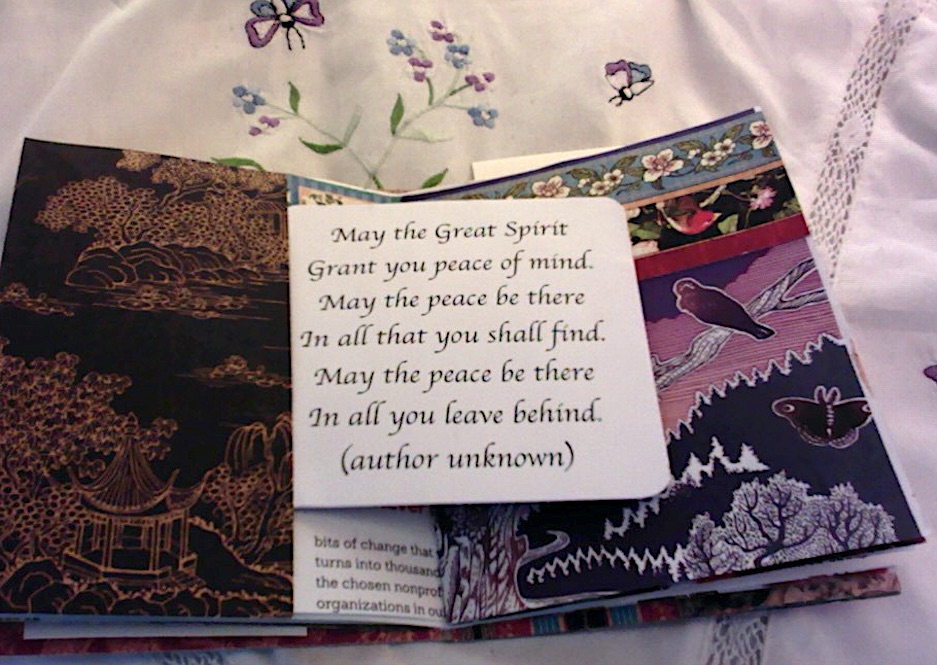 May the Great Spirit
Grant you peace of mind.
May the peace be there
In all that you shall find.
May the peace be there
In all you leave behind.
(author unknown)
bits of change that
turns into thousand
the chosen nonprof
organizations in ou